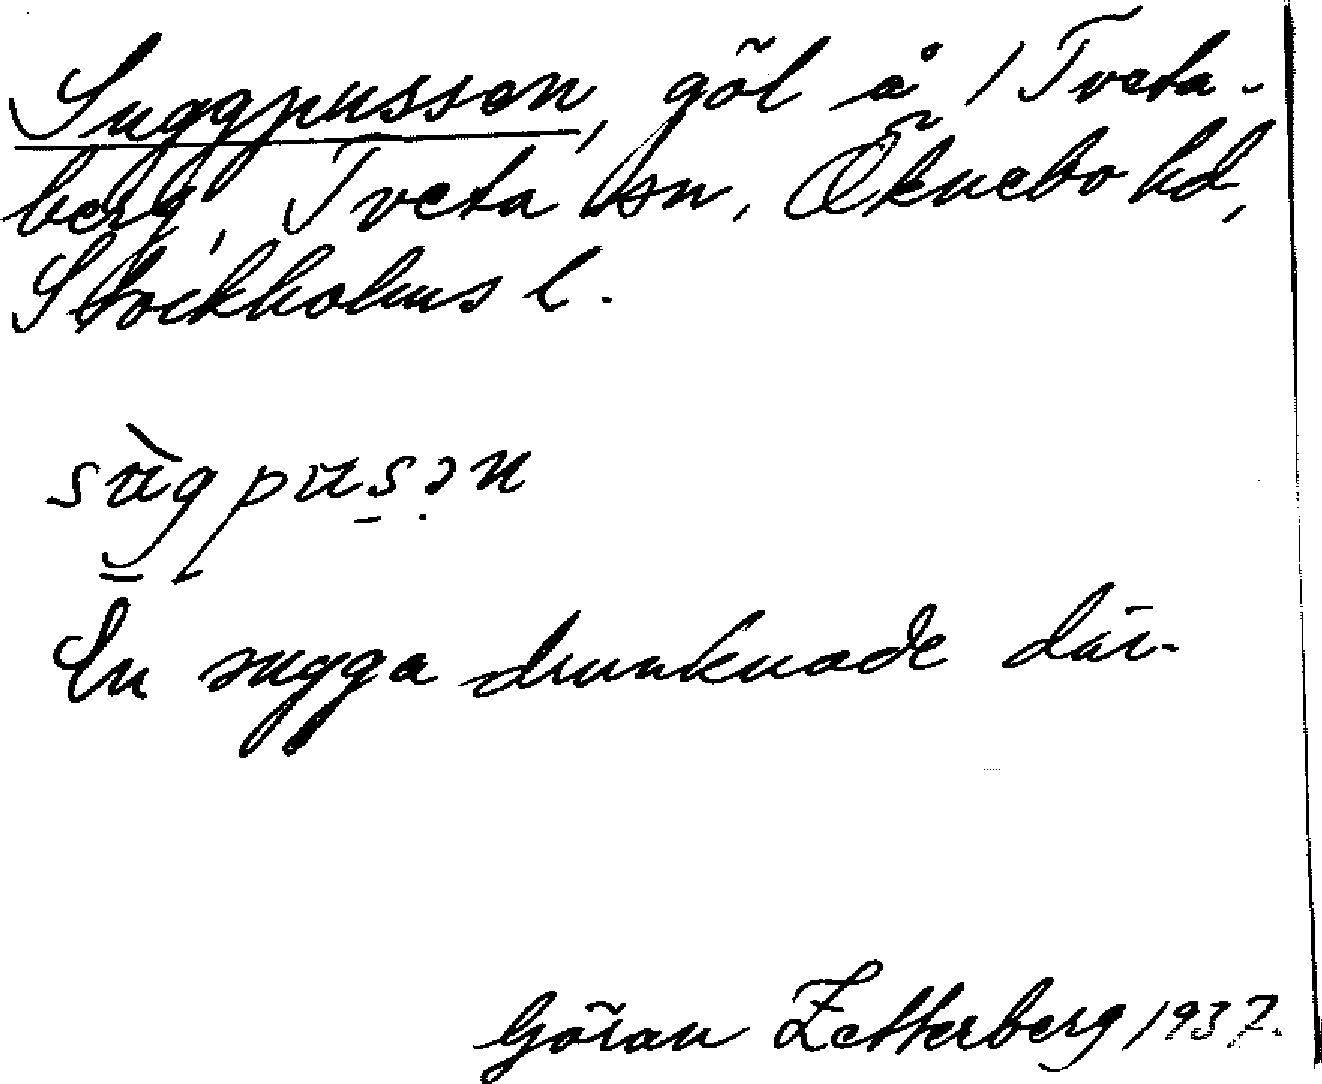 Suggpussen, göl å 1 Tveta-
berg, Tveta sn, Öknebo hd,
Stockholms l.
sùgpusən
En sugga drunknade där.
Göran Zetterberg 1937.